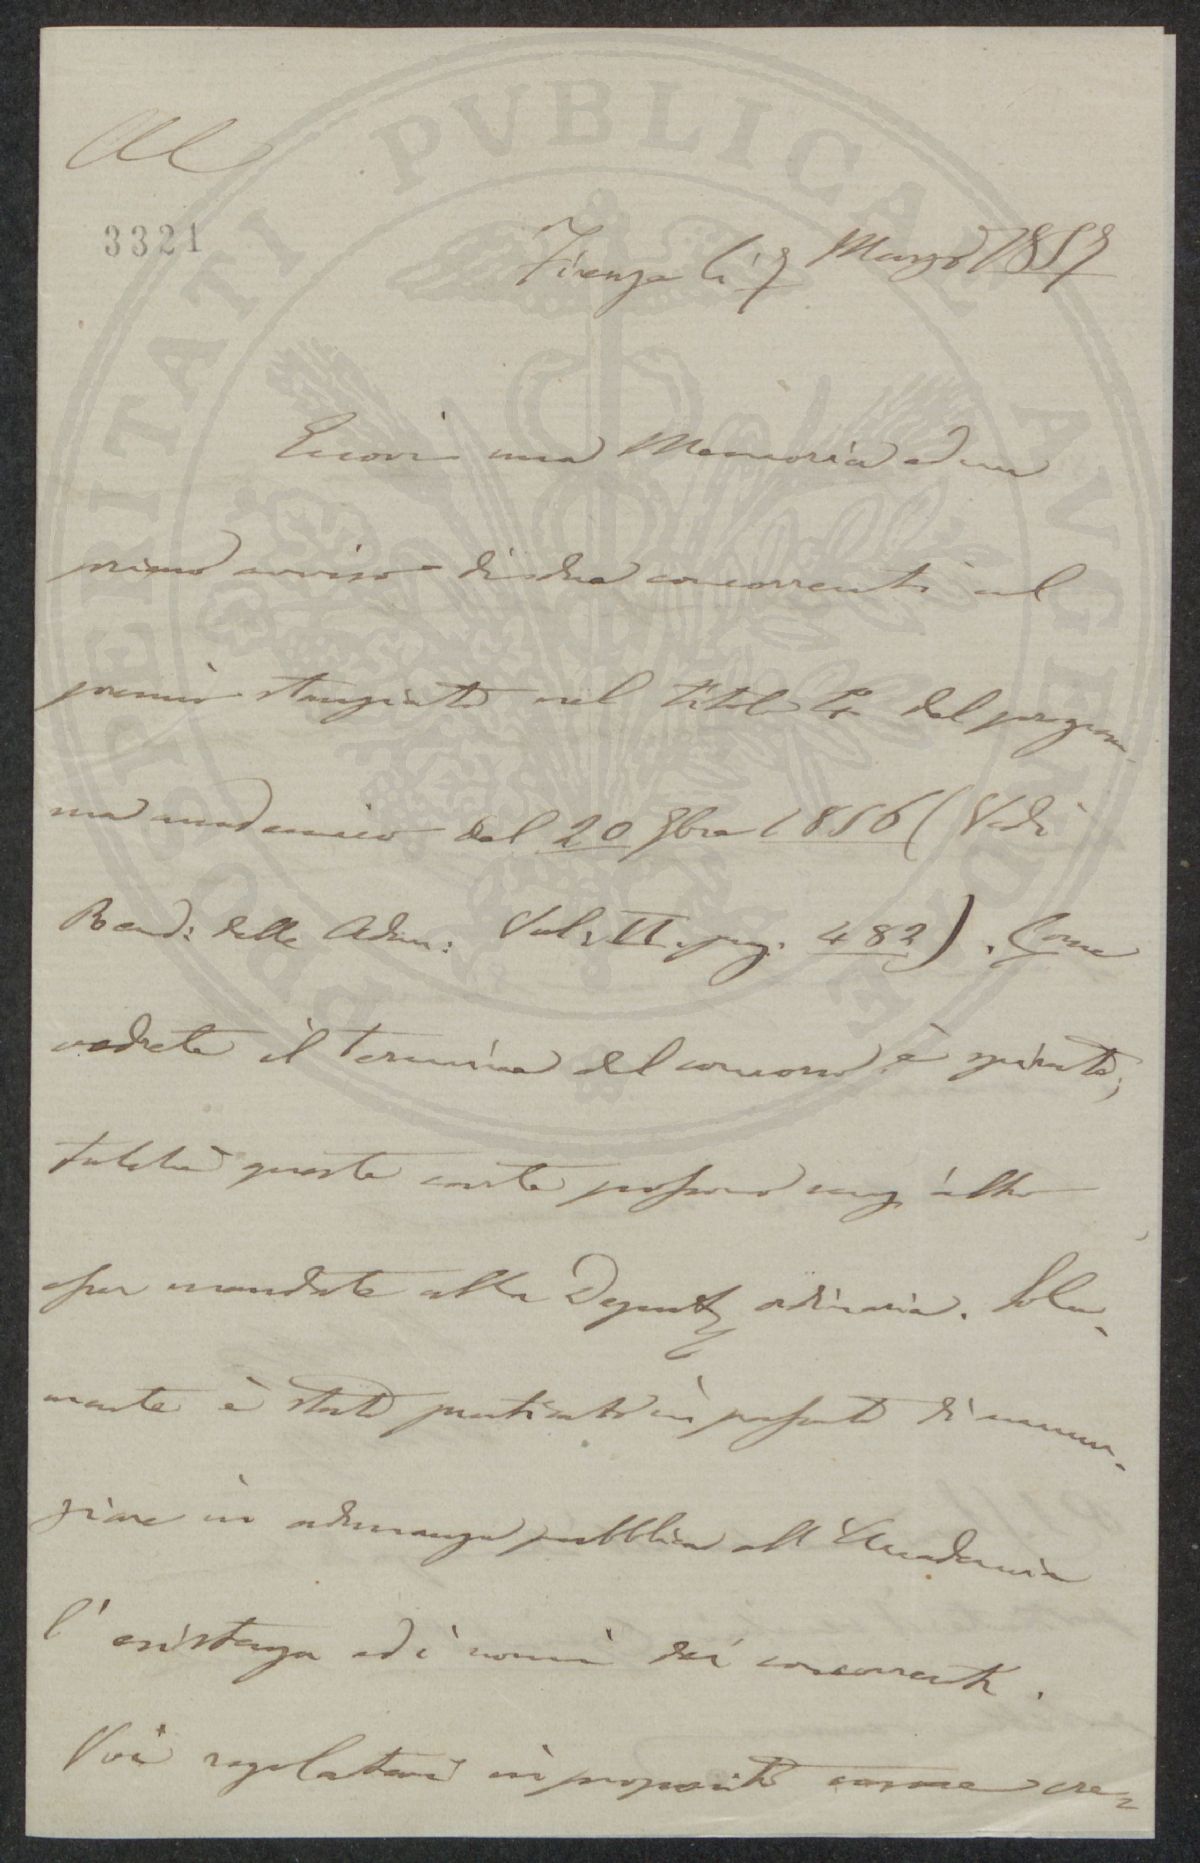 3321
Firenze li 7 Marzo 1857
Eccovi una Memoria ed un
primo avviso di due concorrenti al
premio stanziato nel titolo del program
ma accademico del 20 9bre 1856 (Vedi
Rend: delle Adun: Vol: II. pag. 482). Come
vedrete il termine del concorso è spirato;
talchè queste carte possono senz'altro
esser mandate alla Deputaz ordinaria. Sola-
mente è stato praticato in passato di annun-
ziare in adunanza pubblica all'Accademia
l'esistenza ed i nomi dei concorrenti.
Voi regolatevi in proposito come cre=
PROSPERITATI PVBLICAE AVGENDAE